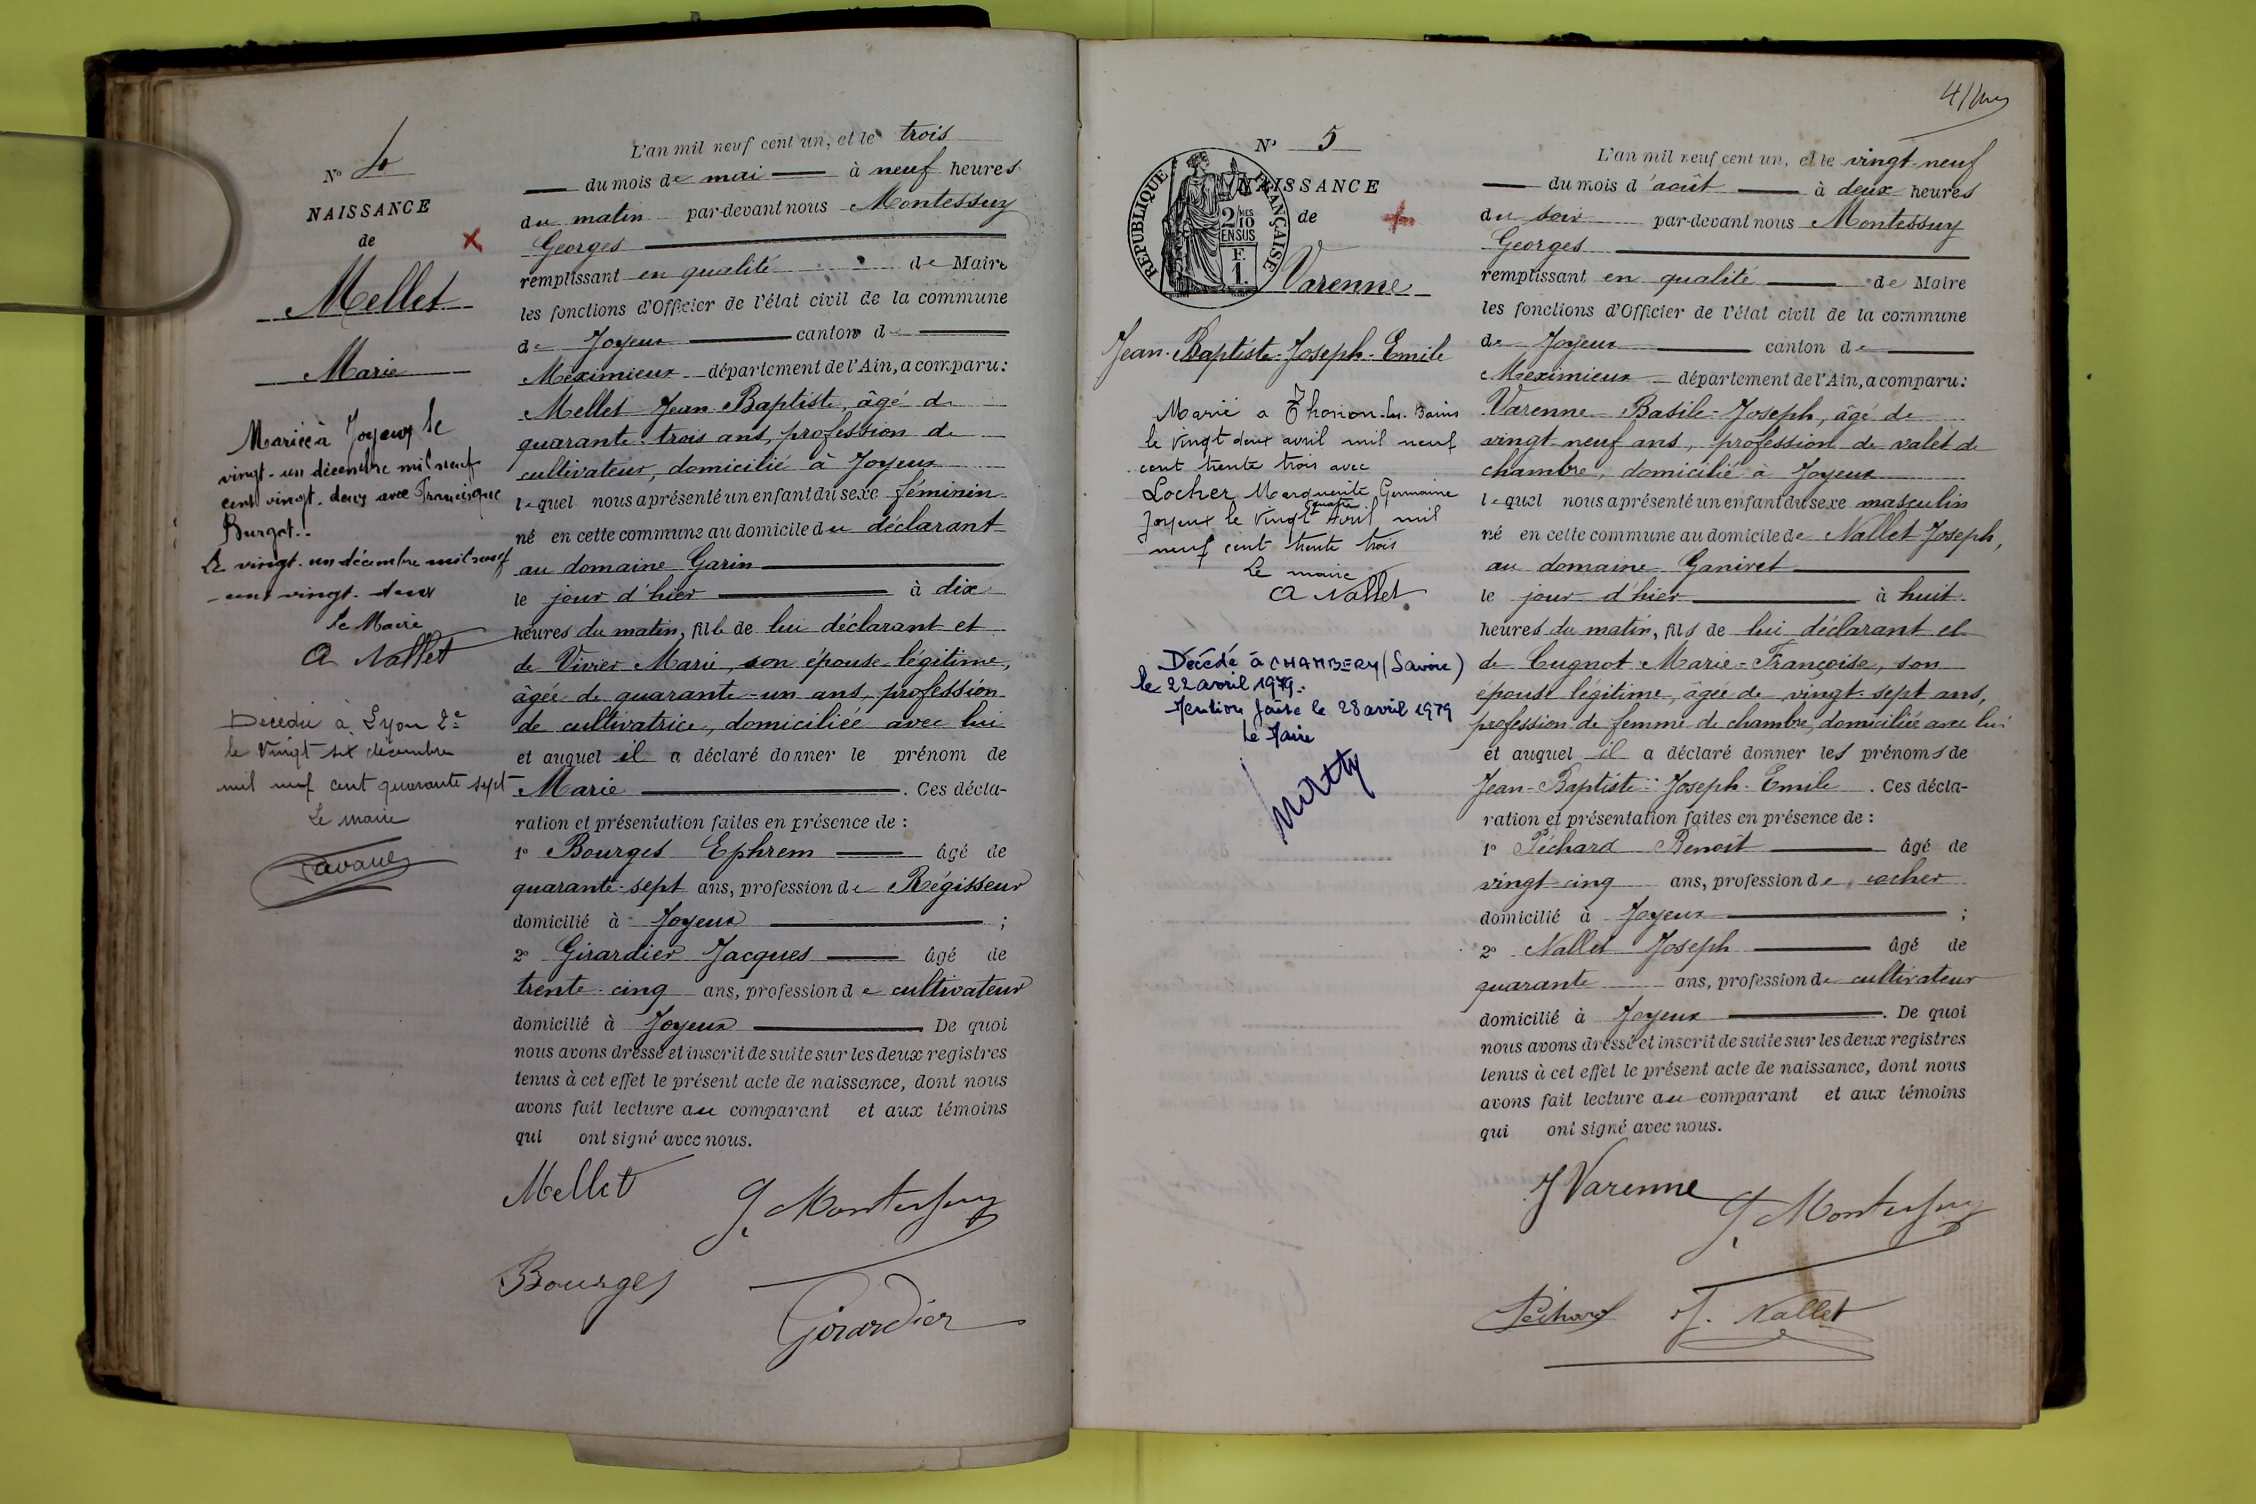 Nº 4
NAISSANCE
de
Mellet
Marie
Mariée à Joyeux le
vingt-un décembre mil neuf
cent vingt-deux avec Francisque
Burgat.
Le vingt-un décembre mil neuf
cent vingt-deux
Le Maire
A Nallet
Décédée à Lyon 2e
le vingt six décembre
mil neuf cent quarante sept
Le maire
L'an mil neuf cent un, et le trois
du mois de mai à neuf heures
du matin par-devant nous Montessuy
Georges
remplissant en qualité de Maire
les fonctions d'Officier de l'état civil de la commune
de Joyeux canton de
Meximieux département de l'Ain, a comparu:
Mellet Jean Baptiste, âgé de
quarante-trois ans, profession de
cultivateur, domicilié à Joyeux
lequel nous a présenté un enfant du sexe féminin
né en cette commune au domicile du déclarant
au domaine Garin
le jour d'hier à dix
heures du matin, fille de lui déclarant et
de Vivier Marie, son épouse légitime,
âgée de quarante-un ans, profession
de cultivatrice, domiciliée avec lui
et auquel il a déclaré donner le prénom de
Marie. Ces décla-
ration et présentation faites en présence de :
1º Bourges Ephrem âgé de
quarante-sept ans, profession de Régisseur
domicilié à Joyeux ;
2º Girardier Jacques âgé de
trente-cinq ans, profession de cultivateur
domicilié à Joyeux. De quoi
nous avons dressé et inscrit de suite sur les deux registres
tenus à cet effet le présent acte de naissance, dont nous
avons fait lecture au comparant et aux témoins
qui ont signé avec nous.
Mellet
G. Montessuy
Bourges
Girardier
Nº 5
NAISSANCE
de
RÉPUBLIQUE FRANÇAISE
2 MES
10
EN SUS
F
1.
Varenne
Jean-Baptiste-Joseph-Emile
Marié a Thonon-les-Bains
le vingt deux avril mil neuf
cent trente trois avec
Locher Marguerite Germaine
Joyeux le vingt quatre avril mil
neuf cent trente trois
Le maire
A Nallet
Décédé à CHAMBERY (Savoie)
le 22 avril 1979.
Mention faite le 28 avril 1979
Le Maire
L'an mil neuf cent un, et le vingt-neuf
du mois d'août à deux heures
du soir par-devant nous Montessuy
Georges
remplissant en qualité de Maire
les fonctions d'Officier de l'état civil de la commune
de Joyeux canton de
Meximieux département de l'Ain, a comparu:
Varenne Basile-Joseph, âgé de
vingt-neuf ans, profession de valet de
chambre, domicilié à Joyeux
lequel nous a présenté un enfant du sexe masculin
né en cette commune au domicile de Nallet Joseph,
au domaine Ganivet
le jour d'hier à huit
heures du matin, fils de lui déclarant et
de Cugnot Marie-Françoise, son
épouse légitime, âgée de vingt-sept ans,
profession de femme de chambre, domiciliée avec lui
et auquel il a déclaré donner les prénoms de
Jean-Baptiste-Joseph-Emile. Ces décla-
ration et présentation faites en présence de :
1º Péchard Benoît âgé de
vingt-cinq ans, profession de cocher
domicilié à Joyeux ;
2º Nallet Joseph âgé de
quarante ans, profession de cultivateur
domicilié à Joyeux. De quoi
nous avons dressé et inscrit de suite sur les deux registres
tenus à cet effet le présent acte de naissance, dont nous
avons fait lecture au comparant et aux témoins
qui ont signé avec nous.
J Varenne
G. Montessuy
Péchard
J. Nallet